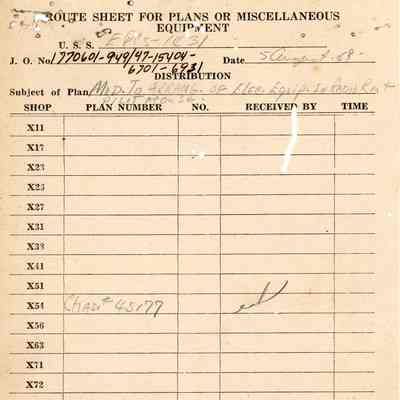 ROUTE SHEET FOR PLANS OR MISCELLANEOUS
EQUIPMENT
U. S. S. EPCS-1431
J. O. No. 1770601-949/97-15404 Date 5 August 58
6701-6931
DISTRIBUTION
Subject of Plan MOD. TO ARRANG. OF ELEC. EQUIP. IN RADIO RM +
PILOT HOUSE.
SHOP PLAN NUMBER NO. RECEIVED BY TIME
X11
X17
X23
X26
X27
X31
X38
X41
X51
X54 45177
X56
X63
X71
X72